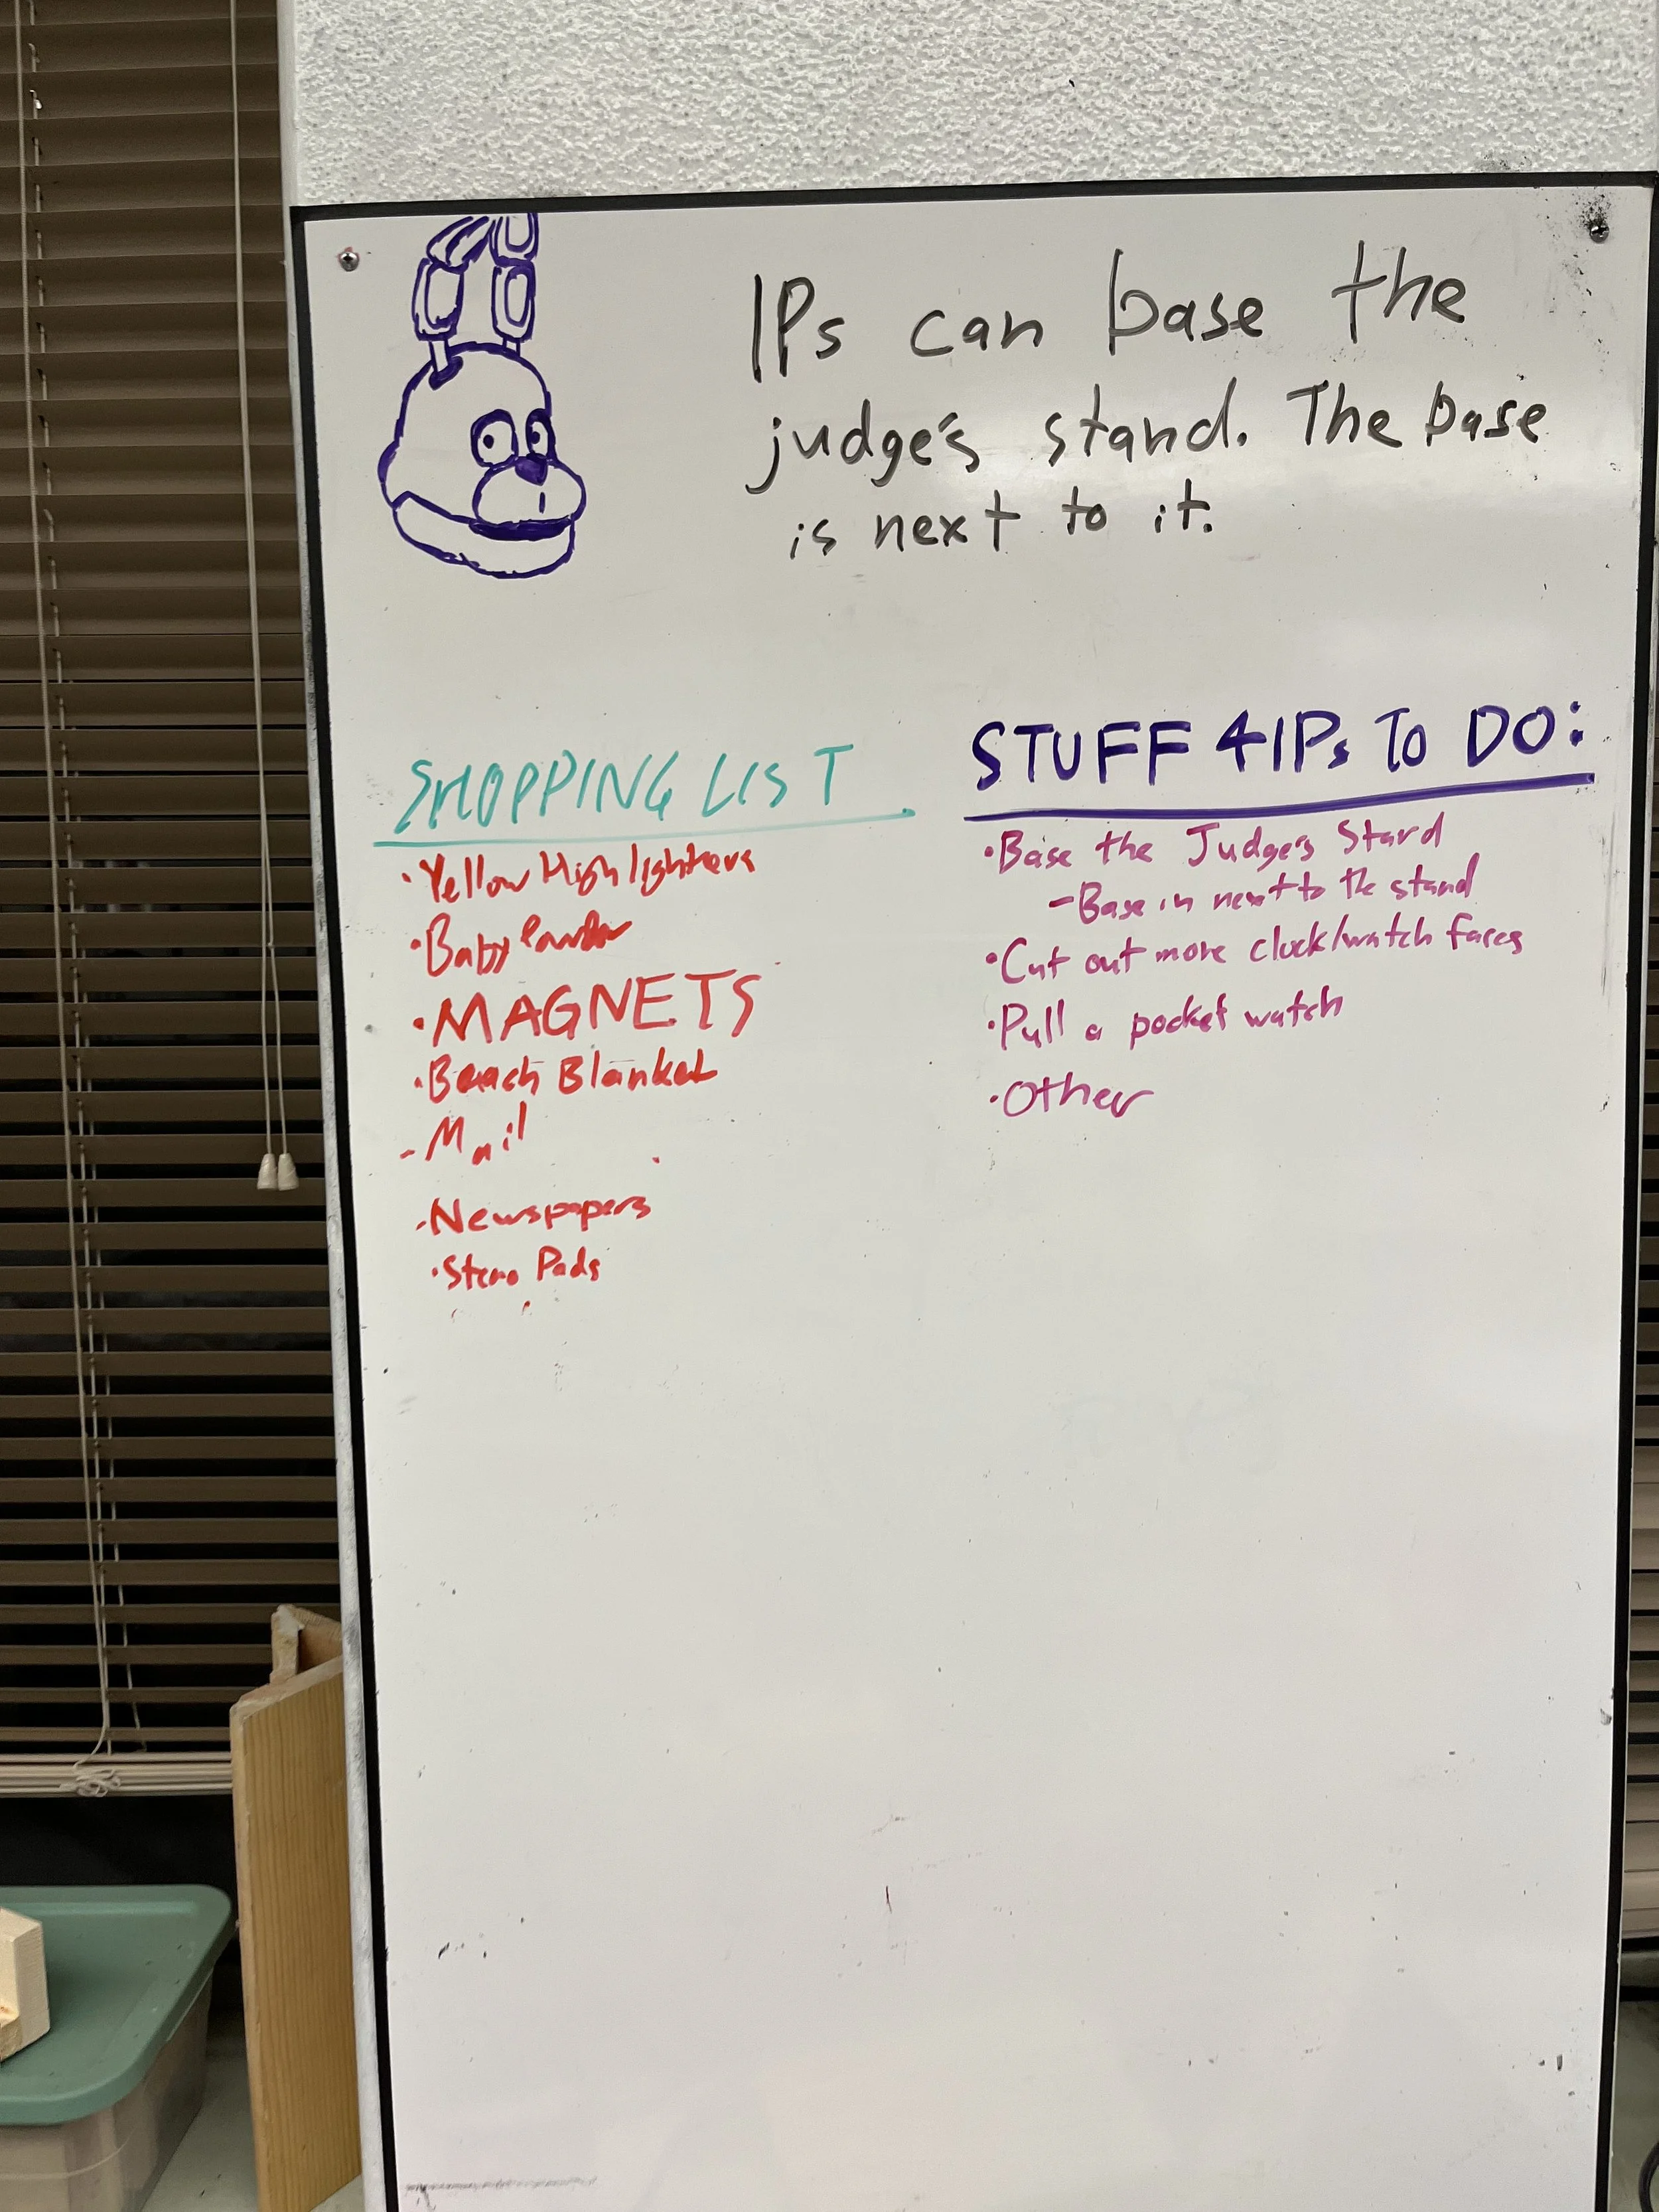 IPs can base the
judge's stand. The base
is next to it.
SHOPPING LIST
• Yellow Highlighters
• Baby Powder
• MAGNETS
• Beach Blanket
- Mail
- Newspapers
• Steno Pads
STUFF 4 IPs TO DO:
• Base the Judge's Stand
- Base is next to the stand
• Cut out more clock/watch faces
• Pull a pocket watch
• Other